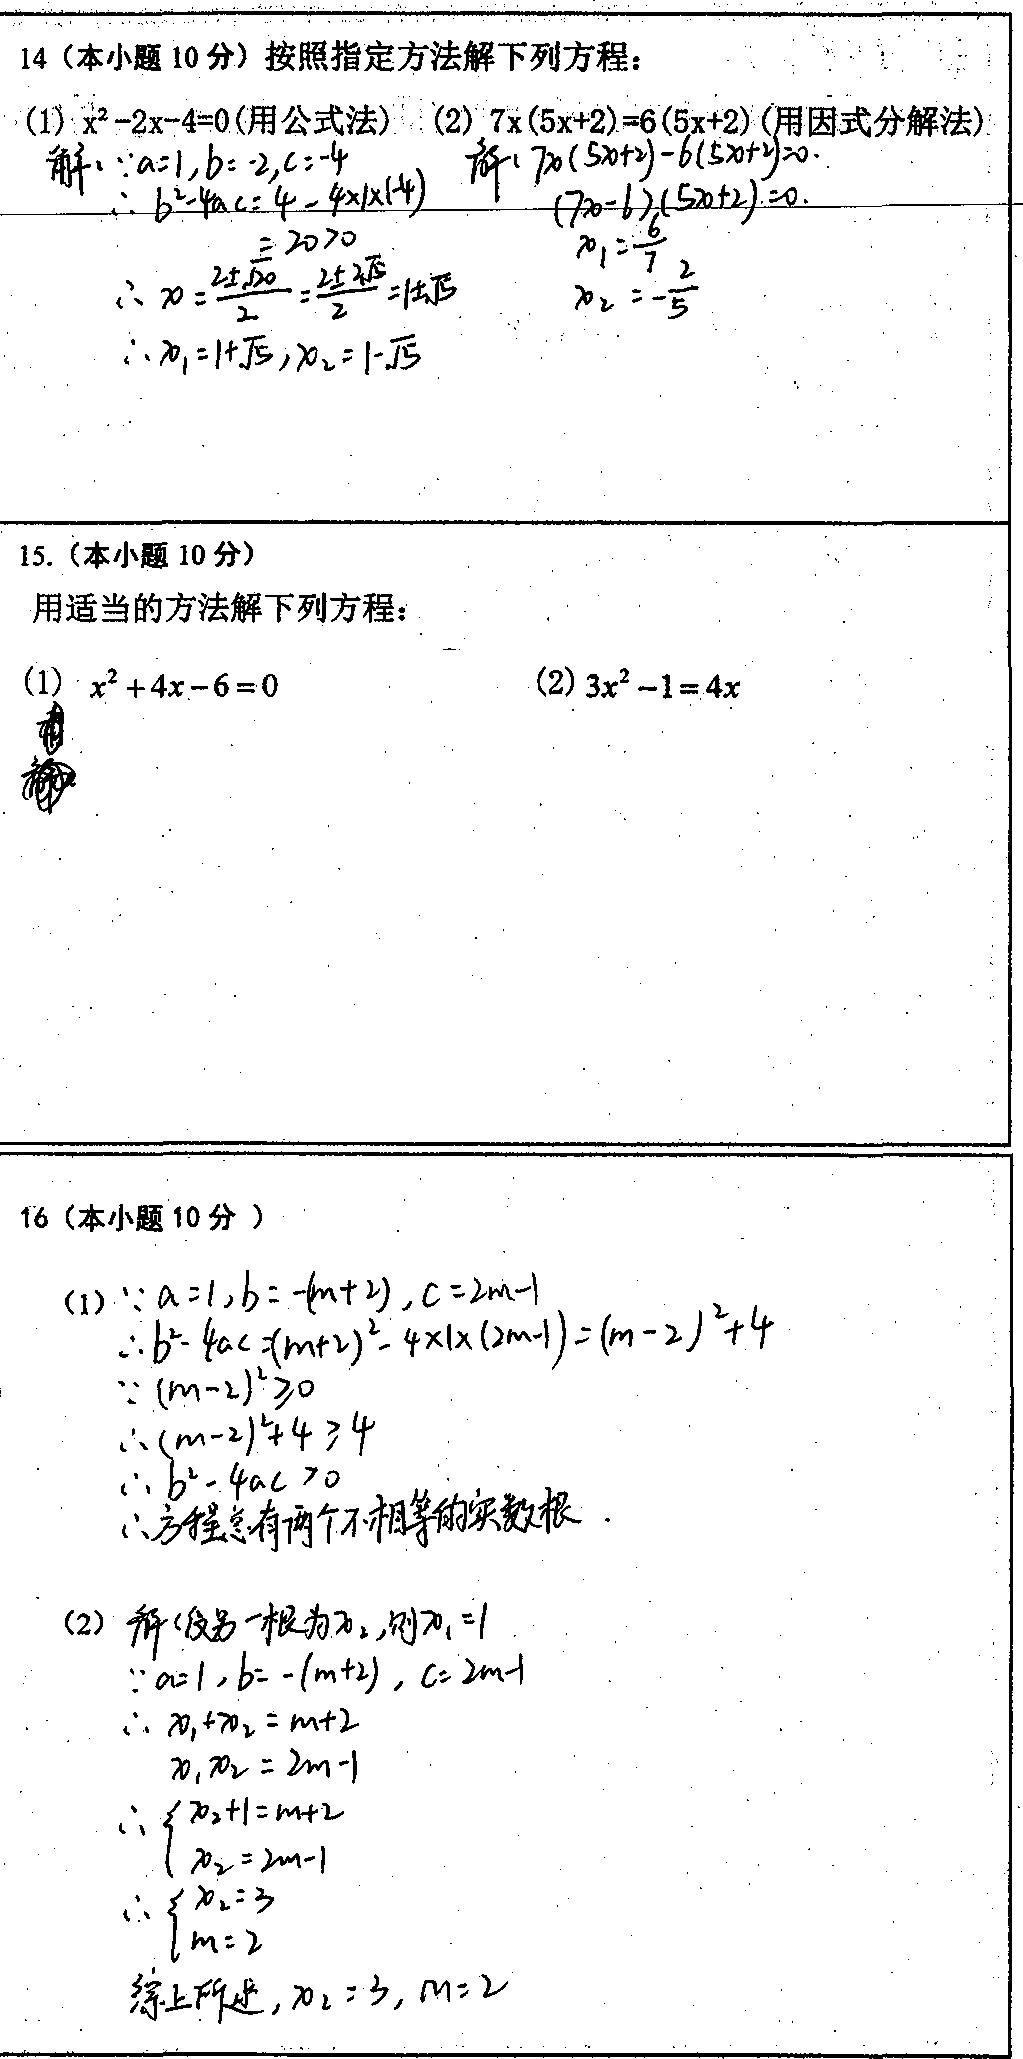 14（本小题 10 分）按照指定方法解下列方程：
(1) x²-2x-4=0(用公式法) (2) 7x(5x+2)=6(5x+2)(用因式分解法)
解：∵a=1,b=-2,c=-4
∴b²-4ac=4-4×1×(-4)
=20>0
∴x=\frac{2±√20}{2}=\frac{2±2√5}{2}=1±√5
∴x₁=1+√5,x₂=1-√5
解：7x(5x+2)-6(5x+2)=0.
(7x-6)(5x+2)=0.
x₁=\frac{6}{7}
x₂=-\frac{2}{5}
15.（本小题 10 分）
用适当的方法解下列方程：
(1) x²+4x-6=0 (2) 3x²-1=4x
16（本小题 10 分 ）
(1) ∵a=1,b=-(m+2),c=2m-1
∴b²-4ac=(m+2)²-4×1×(2m-1)=(m-2)²+4
∵(m-2)²≥0
∴(m-2)²+4≥4
∴b²-4ac>0
∴方程总有两个不相等的实数根.
(2) 解：设另一根为x₂,则x₁=1
∵a=1,b=-(m+2),c=2m-1
∴x₁+x₂=m+2
x₁x₂=2m-1
∴{x₂+1=m+2
x₂=2m-1
∴{x₂=3
m=2
综上所述,x₂=3,m=2